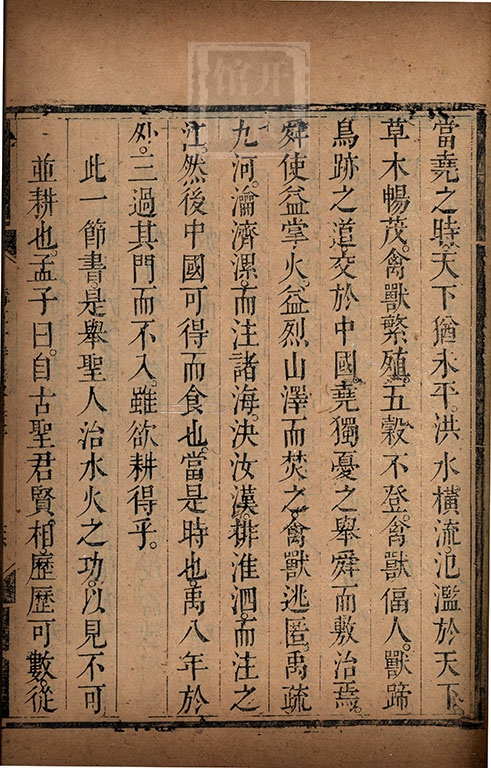 當堯之時。天下猶未平。洪水橫流。氾濫於天下。
草木暢茂。禽獸繁殖。五穀不登。禽獸偪人。獸蹄
鳥跡之道。交於中國。堯獨憂之。舉舜而敷治焉。
舜使益掌火。益烈山澤而焚之。禽獸逃匿。禹疏
九河。瀹濟漯。而注諸海。決汝漢。排淮泗。而注之
江。然後中國可得而食也。當是時也。禹八年於
外。三過其門而不入。雖欲耕得乎。
此一節書。是舉聖人治水火之功。以見不可
並耕也。孟子曰。自古聖君賢相。歷歷可數。從